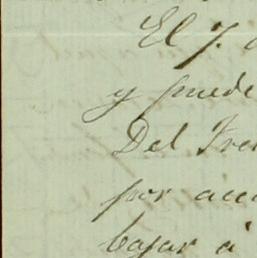 El 7.
y puede
Del Fre
por acc
bajar á